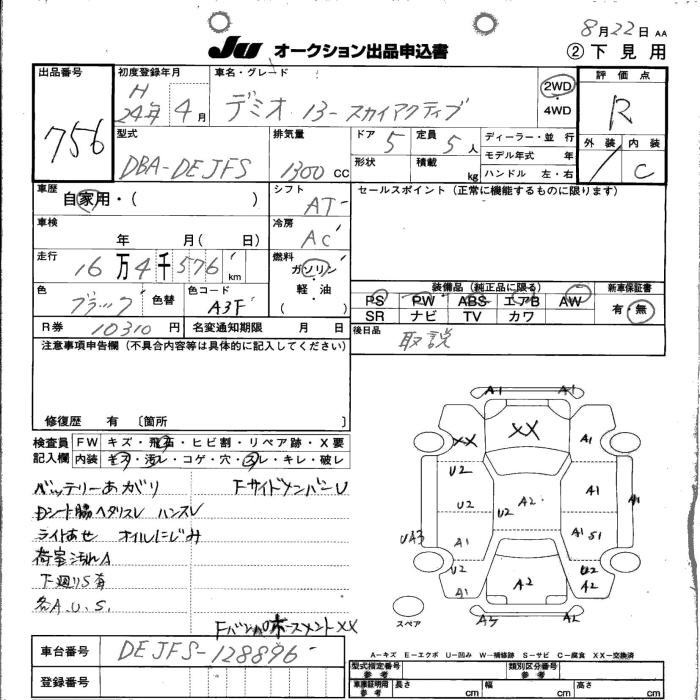 8月22日 AA
JU オークション出品申込書
② 下見用
出品番号
756
初度登録年月
H
24年 4月
車名・グレード
デミオ 13-スカイアクティブ
2WD
・
4WD
評価点
R
外装 内装
C
型式
DBA-DEJFS
排気量
1300 CC
ドア 5
定員 5人
ディーラー・並行
モデル年式 年
形状
積載 kg
ハンドル 左・右
車歴
自家用・( )
シフト
AT
セールスポイント(正常に機能するものに限ります)
車検
年 月( 日)
冷房
AC
走行
16万4千576 km
燃料
ガソリン
軽・油
( )
装備品(純正品に限る)
新車保証書
PS PW ABS エアB AW
SR ナビ TV カワ
有・無
色
ブラック
色替
色コード
A3F
R券 10310円
名変通知期限 月 日
後日品
取説
注意事項申告欄(不具合内容等は具体的に記入してください)
修復歴 有 〔箇所 〕
検査員
記入欄
FW キズ・飛石・ヒビ割・リペア跡・X要
内装 キズ・汚レ・コゲ・穴・スレ・キレ・破レ
バッテリーあがり FサイドメンバーU
Dシート脇ヘタリスレ ハンスレ
ライトあせ オイルにじみ
荷室汚れA
下廻りS有
各A.U.S.
車台番号
DEJFS-128896
登録番号
A1 A1
XX XX A1
U2 A1 A1
U2 U2 A2
UA3 A1 A1 S1
U2 U2
A1 A2 A2
A2
スペア
A-キズ E-エクボ U-凹み W-補修跡 S-サビ C-腐食 XX-交換済
型式指定番号
参考
類別区分番号
参考
車庫証明用
参考
長さ cm
幅 cm
高さ cm